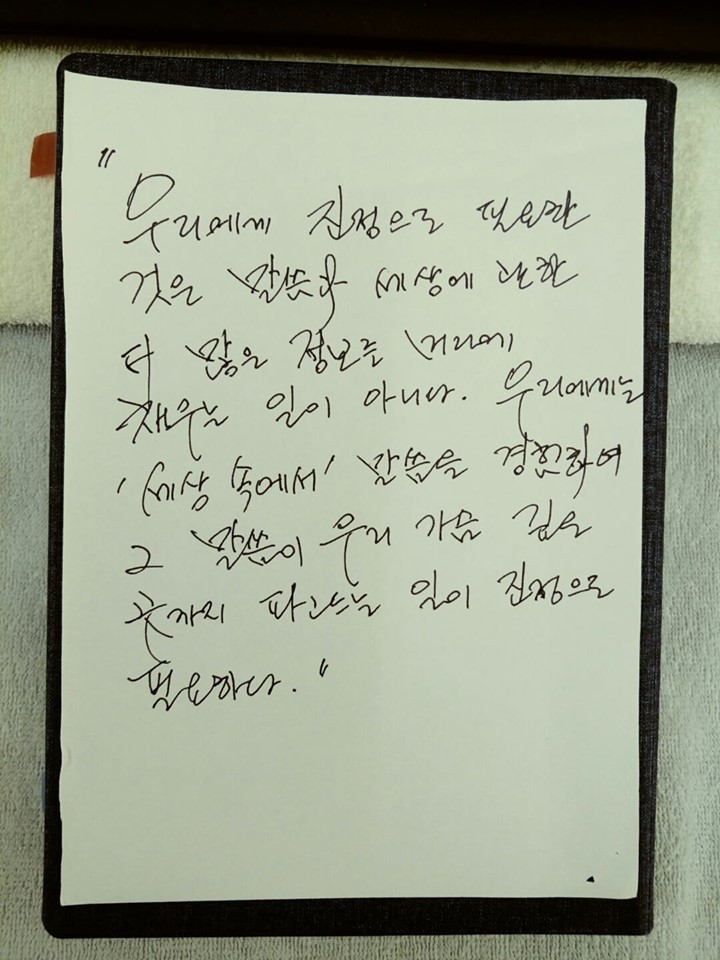 "우리에게 진정으로 필요한
것은 말씀과 세상에 관한
더 많은 정보를 머리에
채우는 일이 아니다. 우리에게는
'세상 속에서' 말씀을 경험하여
그 말씀이 우리 가슴 깊은
곳까지 파고드는 일이 진정으로
필요하다."